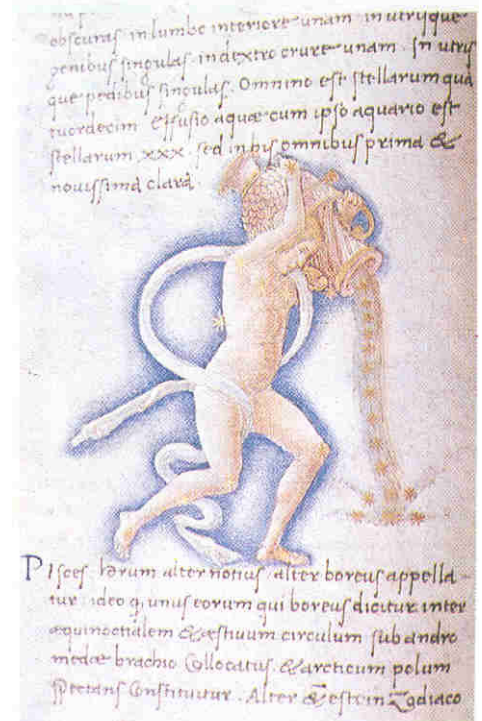 obscuras in lumbo interiore unam in utrisque
genibus singulas. in dextro crure unam. In utris
que pedibus singulas. Omnino est stellarum qua
tuordecim effusio aquæ cum ipso aquario est
stellarum xxx. sed in his omnibus prima &
novissima clara.
Pisces. horum alter notius alter boreus appella
tur ideo q; unus eorum qui boreus dicitur inter
æquinoctialem & æstivum circulum sub andro
medæ brachio collocatus. & arcticum polum
spectans constituitur. Alter & est in Zodiaco